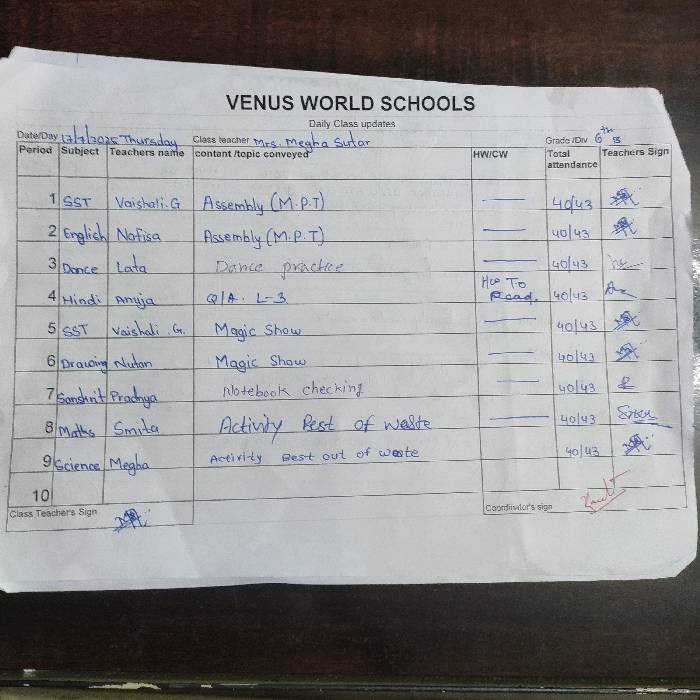 VENUS WORLD SCHOOLS
Daily Class updates
Date/Day 17/7/2025 Thursday Class teacher Mrs. Megha Sutar Grade /Div 6th B
Period Subject Teachers name content /topic conveyed HW/CW Total attendance Teachers Sign
1 SST Vaishali.G Assembly (M.P.T) — 40/43
2 English Nafisa Assembly (M.P.T) — 40/43
3 Dance Lata Dance practice — 40/43
4 Hindi Anuja Q/A. L-3 To Read. 40/43
5 SST Vaishali .G. Magic Show — 40/43
6 Drawing Nutan Magic Show — 40/43
7 Sanskrit Pradnya Notebook checking — 40/43
8 Maths Smita Activity Best of waste — 40/43
9 Science Megha Activity Best out of waste 40/43
10
Class Teacher's Sign Coordinator's sign